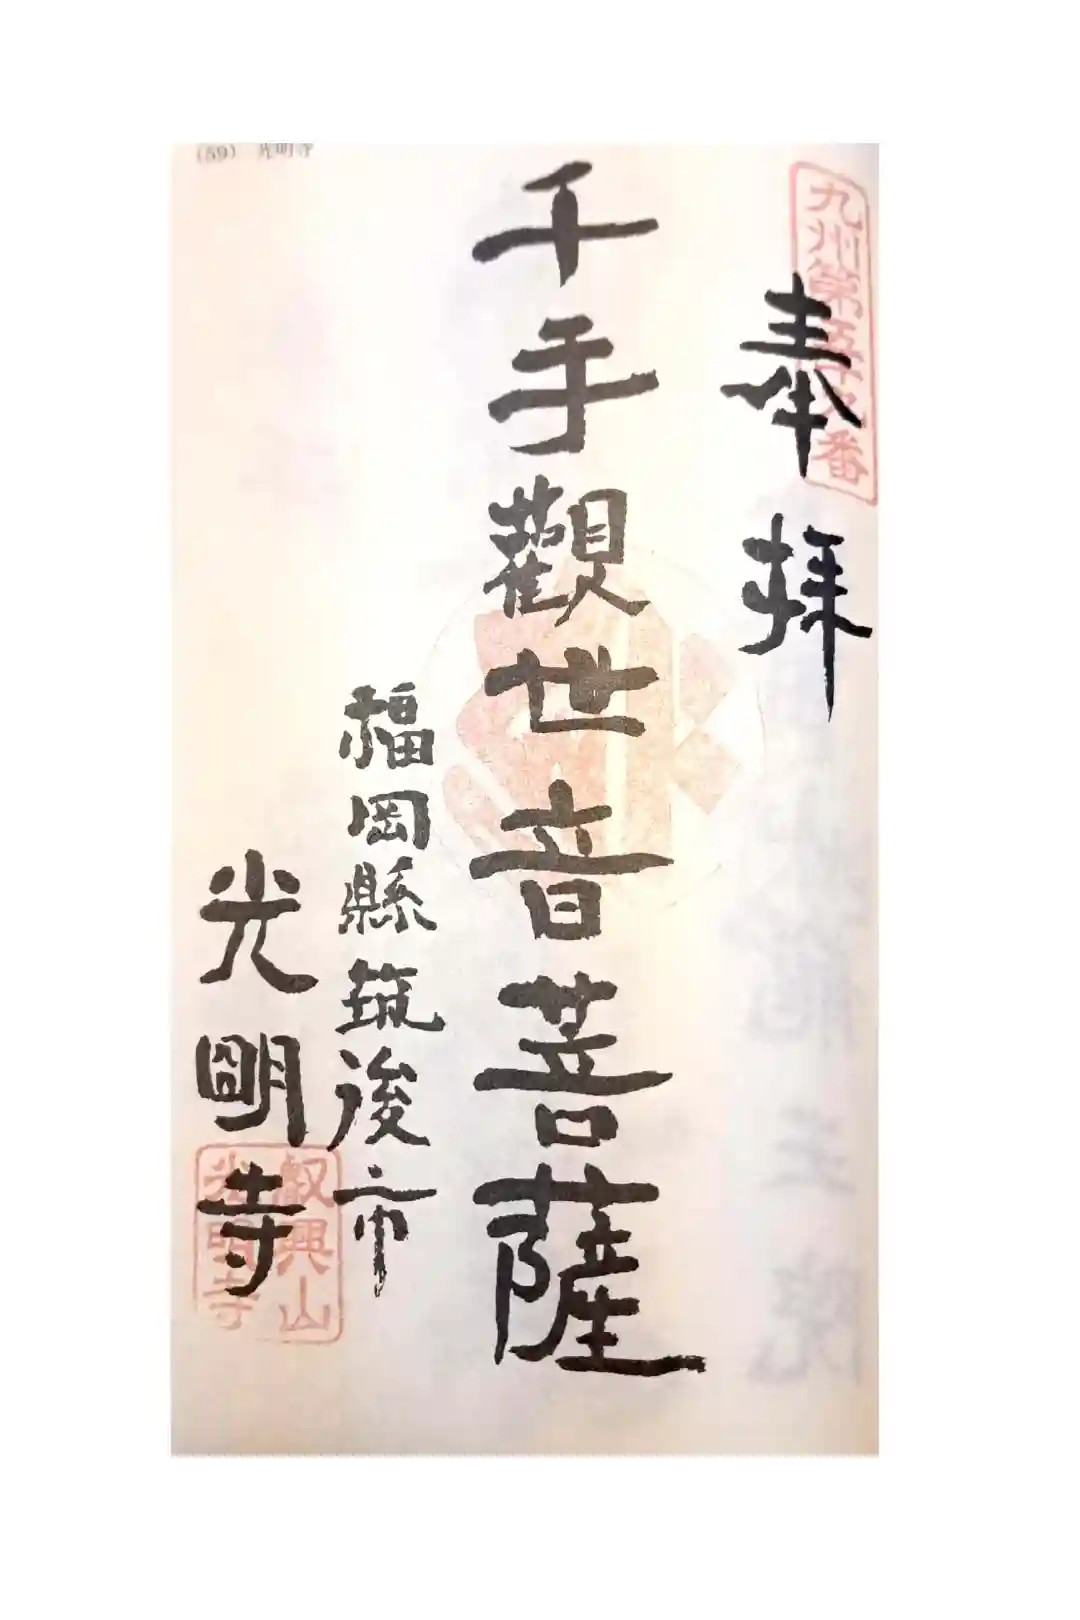 (59) 光明寺
九州第五十九番
奉拝
千手觀世音菩薩
福岡縣筑後市
光明寺
叡興山
光明寺